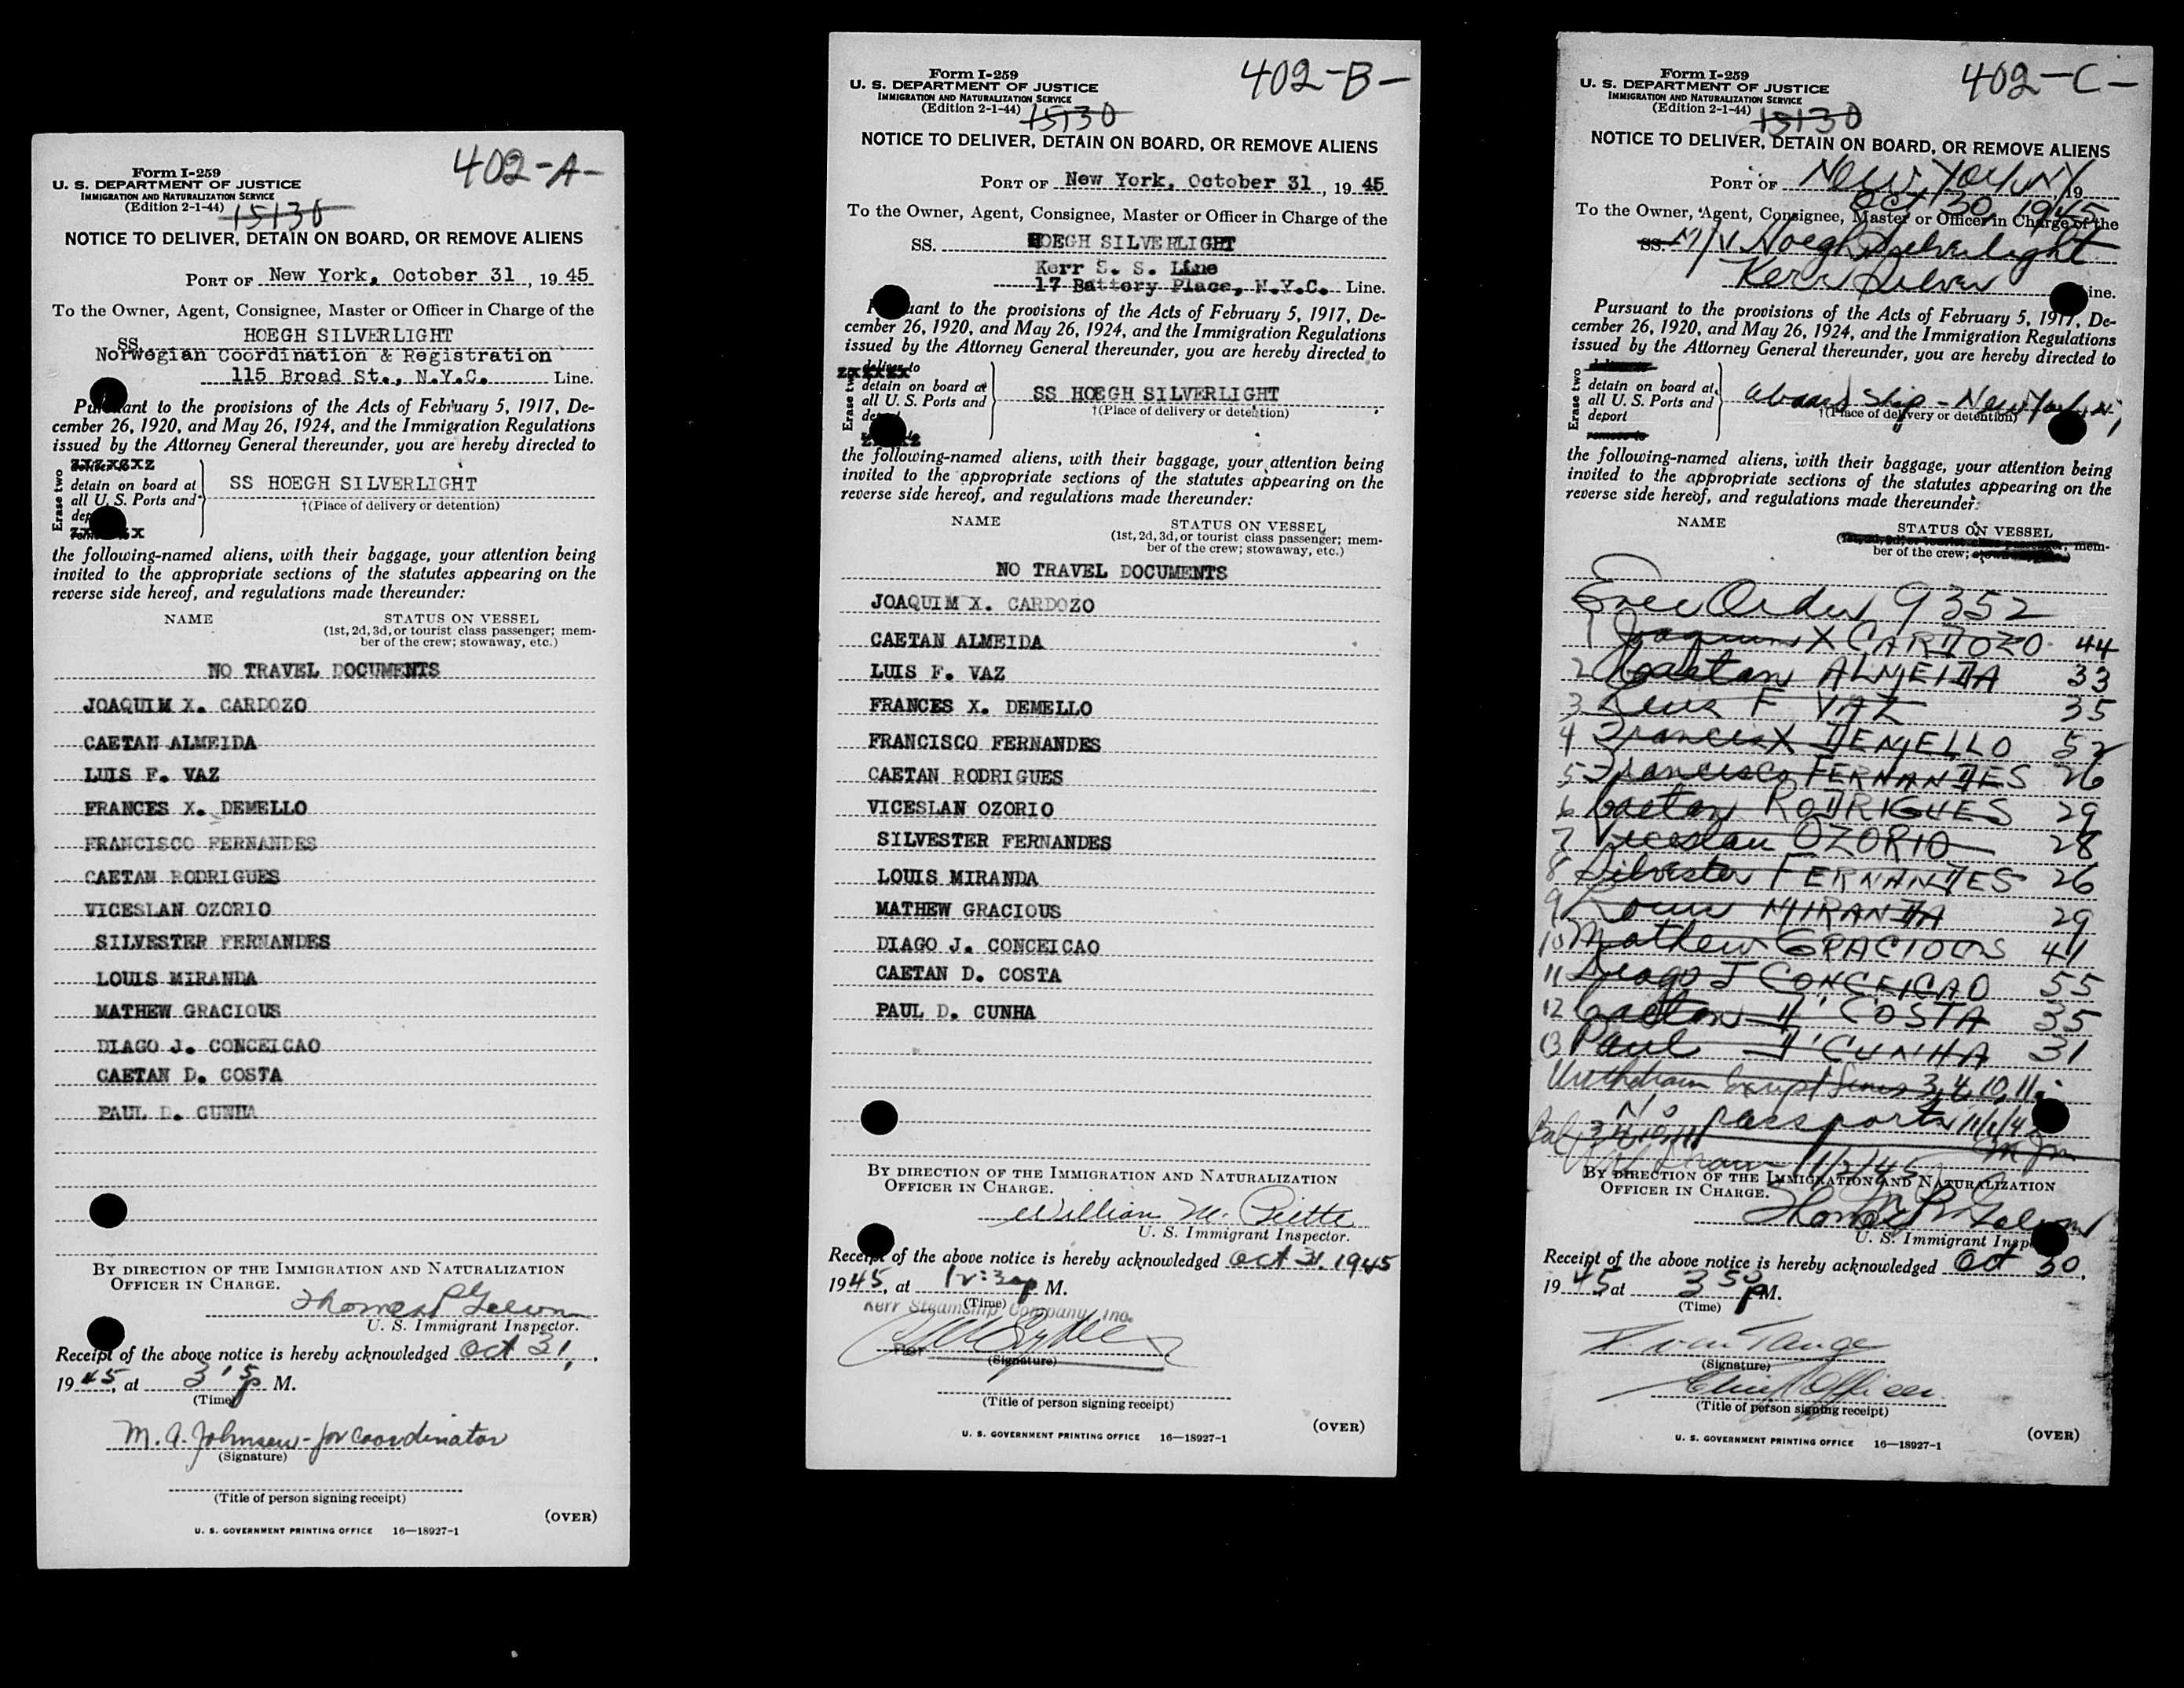 402-A-
Form I-259
U. S. DEPARTMENT OF JUSTICE
IMMIGRATION AND NATURALIZATION SERVICE
(Edition 2-1-44)
15130
NOTICE TO DELIVER, DETAIN ON BOARD, OR REMOVE ALIENS
PORT OF New York, October 31, 19 45
To the Owner, Agent, Consignee, Master or Officer in Charge of the
SS. HOEGH SILVERLIGHT
Norwegian Coordination & Registration
115 Broad St., N.Y.C. Line.
Pursuant to the provisions of the Acts of February 5, 1917, De-
cember 26, 1920, and May 26, 1924, and the Immigration Regulations
issued by the Attorney General thereunder, you are hereby directed to
Erase two
detain on board at
all U. S. Ports and
SS HOEGH SILVERLIGHT
†(Place of delivery or detention)
the following-named aliens, with their baggage, your attention being
invited to the appropriate sections of the statutes appearing on the
reverse side hereof, and regulations made thereunder:
NAME STATUS ON VESSEL
(1st, 2d, 3d, or tourist class passenger; mem-
ber of the crew; stowaway, etc.)
NO TRAVEL DOCUMENTS
JOAQUIM X. CARDOZO
CAETAN ALMEIDA
LUIS F. VAZ
FRANCES X. DEMELLO
FRANCISCO FERNANDES
CAETAN RODRIGUES
VICESLAN OZORIO
SILVESTER FERNANDES
LOUIS MIRANDA
MATHEW GRACIOUS
DIAGO J. CONCEICAO
CAETAN D. COSTA
PAUL D. CUNHA
BY DIRECTION OF THE IMMIGRATION AND NATURALIZATION
OFFICER IN CHARGE.
U. S. Immigrant Inspector.
Receipt of the above notice is hereby acknowledged Oct 31,
19 45, at 3 15 P. M.
(Time)
M. A. Johnsen - for Coordinator
(Signature)
(Title of person signing receipt)
(OVER)
U. S. GOVERNMENT PRINTING OFFICE 16—18927-1
402-B-
Form I-259
U. S. DEPARTMENT OF JUSTICE
IMMIGRATION AND NATURALIZATION SERVICE
(Edition 2-1-44)
15130
NOTICE TO DELIVER, DETAIN ON BOARD, OR REMOVE ALIENS
PORT OF New York, October 31, 19 45
To the Owner, Agent, Consignee, Master or Officer in Charge of the
SS. HOEGH SILVERLIGHT
Kerr S. S. Line
17 Battery Place, N.Y.C. Line.
Pursuant to the provisions of the Acts of February 5, 1917, De-
cember 26, 1920, and May 26, 1924, and the Immigration Regulations
issued by the Attorney General thereunder, you are hereby directed to
Erase two
deliver to
detain on board at
all U. S. Ports and
SS HOEGH SILVERLIGHT
†(Place of delivery or detention)
the following-named aliens, with their baggage, your attention being
invited to the appropriate sections of the statutes appearing on the
reverse side hereof, and regulations made thereunder:
NAME STATUS ON VESSEL
(1st, 2d, 3d, or tourist class passenger; mem-
ber of the crew; stowaway, etc.)
NO TRAVEL DOCUMENTS
JOAQUIM X. CARDOZO
CAETAN ALMEIDA
LUIS F. VAZ
FRANCES X. DEMELLO
FRANCISCO FERNANDES
CAETAN RODRIGUES
VICESLAN OZORIO
SILVESTER FERNANDES
LOUIS MIRANDA
MATHEW GRACIOUS
DIAGO J. CONCEICAO
CAETAN D. COSTA
PAUL D. CUNHA
BY DIRECTION OF THE IMMIGRATION AND NATURALIZATION
OFFICER IN CHARGE.
William M. Piette
U. S. Immigrant Inspector.
Receipt of the above notice is hereby acknowledged Oct 31. 1945
19 45, at 12:30 P M.
(Time)
Kerr Steamship Company, Inc.
Per
(Signature)
(Title of person signing receipt)
(OVER)
U. S. GOVERNMENT PRINTING OFFICE 16—18927-1
402-C-
Form I-259
U. S. DEPARTMENT OF JUSTICE
IMMIGRATION AND NATURALIZATION SERVICE
(Edition 2-1-44)
15130
NOTICE TO DELIVER, DETAIN ON BOARD, OR REMOVE ALIENS
PORT OF New York NY 19
Oct 30, 1945
To the Owner, Agent, Consignee, Master or Officer in Charge of the
SS. M/V Hoegh Silverlight
Kerr Silver Line.
Pursuant to the provisions of the Acts of February 5, 1917, De-
cember 26, 1920, and May 26, 1924, and the Immigration Regulations
issued by the Attorney General thereunder, you are hereby directed to
Erase two
detain on board at
all U. S. Ports and
deport
remove to
aboard Ship - New York, N.Y.
†(Place of delivery or detention)
the following-named aliens, with their baggage, your attention being
invited to the appropriate sections of the statutes appearing on the
reverse side hereof, and regulations made thereunder:
NAME STATUS ON VESSEL
mem-
ber of the crew;
Exec Order 9352
1 Joaquim X CARDOZO 44
2 Caetan ALMEIDA 33
3 Luis F VAZ 35
4 Francis X DEMELLO 52
5 Francisco FERNANDES 26
6 Caetan RODRIGUES 29
7 Viceslau OZORIO 28
8 Silvester FERNANDES 26
9 Louis MIRANDA 29
10 Mathew GRACIOUS 41
11 Diago J CONCEICAO 55
12 Caetan D'COSTA 35
13 Paul D'CUNHA 31
Withdrawn Except Lines 3, 4, 10, 11.
No passports
Bal 3 4 10, 11
Withdrawn 11/2/45
BY DIRECTION OF THE IMMIGRATION AND NATURALIZATION
OFFICER IN CHARGE.
U. S. Immigrant Inspector.
Receipt of the above notice is hereby acknowledged Oct 30,
19 45 at 3 50 P M.
(Time)
(Signature)
Chief Officer
(Title of person signing receipt)
(OVER)
U. S. GOVERNMENT PRINTING OFFICE 16—18927-1